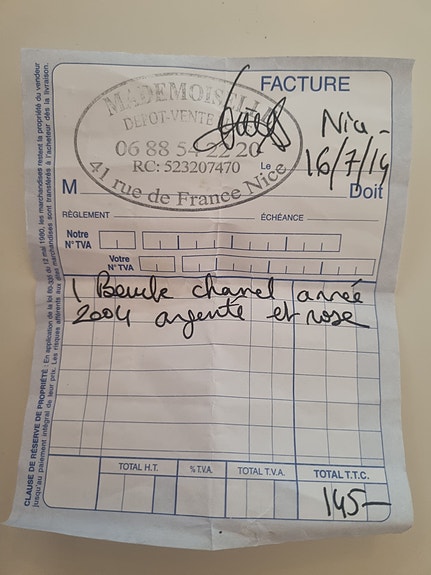 FACTURE
MADEMOISELLE
DEPOT-VENTE
06 88 54 22 20
RC: 523207470
41 rue de France Nice
Nice -
Le 16/7/14
M Doit
RÈGLEMENT ÉCHÉANCE
Notre
N° TVA
Votre
N° TVA
1 Boucle chanel année
2004 argenté et rose
TOTAL H.T. % T.V.A. TOTAL T.V.A. TOTAL T.T.C.
145—
CLAUSE DE RÉSERVE DE PROPRIÉTÉ: En application de la loi 80-335 du 12 mai 1980, les marchandises restent la propriété du vendeur
jusqu'au paiement intégral de leur prix. Les risques afférents aux dites marchandises sont transférés à l'acheteur dès la livraison.